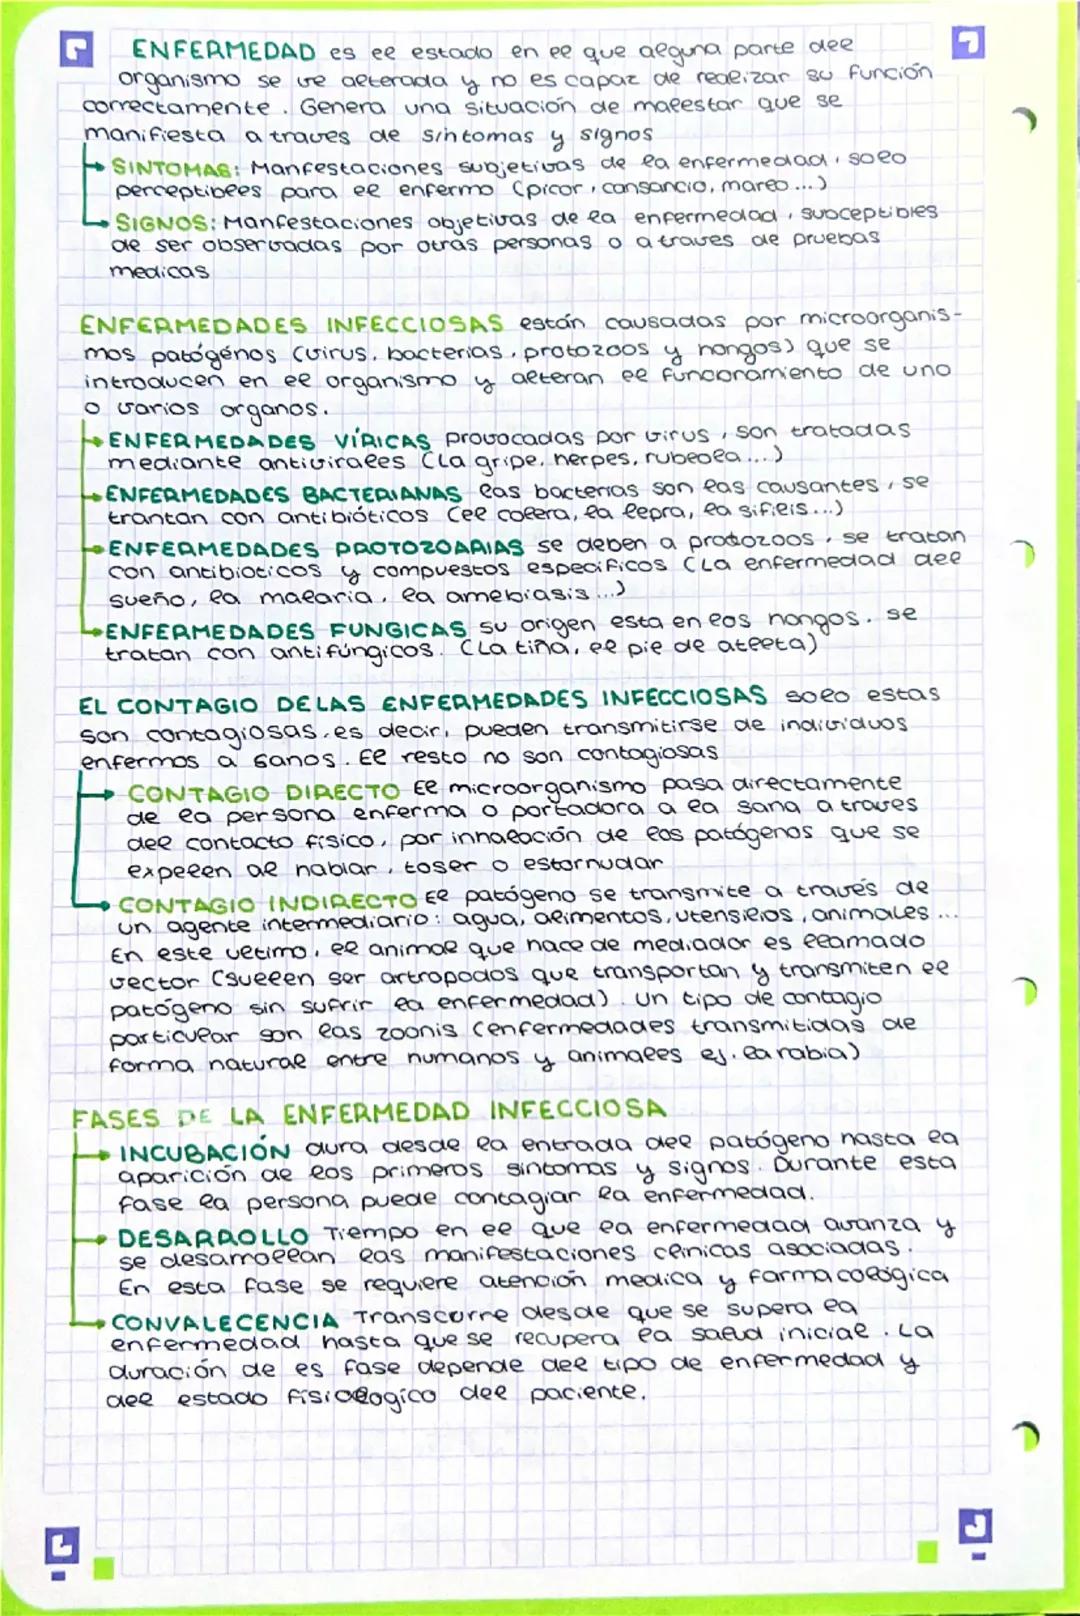 ENFERMEDAD es el estado en el que alguna parte del
organismo se ve alterada y no es capaz de realizar su función
correctamente. Genera una situación de malestar que se
manifiesta a traves de síntomas y signos
SINTOMAS: Manfestaciones subjetivas de la enfermedad, solo
perceptibles para el enfermo (picor, cansancio, mareo...)
SIGNOS: Manfestaciones objetivas de la enfermedad, subceptibles
de ser observadas por otras personas o a traves de pruebas
medicas
ENFERMEDADES INFECCIOSAS están causadas por microorganis-
mos patógenos (virus, bacterias, protozoos y hongos) que se
introducen en el organismo y alteran el funcionamiento de uno
o varios organos.
ENFERMEDADES VÍRICAS provocadas por virus, son tratadas
mediante antivirales (La gripe, herpes, rubeola...)
ENFERMEDADES BACTERIANAS las bacterias son las causantes, se
trantan con antibióticos (el colera, la lepra, la sifilis...)
ENFERMEDADES PROTOZOARIAS se deben a protozoos, se tratan
con antibioticos y compuestos especificos (La enfermedad del
sueño, la malaria, la amebiasis...)
ENFERMEDADES FUNGICAS su origen esta en los hongos. se
tratan con antifúngicos. (La tiña, el pie de atleta)
EL CONTAGIO DE LAS ENFERMEDADES INFECCIOSAS solo estas
son contagiosas, es decir, pueden transmitirse de individuos
enfermos a sanos. El resto no son contagiosas
CONTAGIO DIRECTO El microorganismo pasa directamente
de la persona enferma o portadora a la sana a traves
del contacto físico, por inhalación de los patógenos que se
expelen al hablar, toser o estornudar
CONTAGIO INDIRECTO El patógeno se transmite a través de
un agente intermediario: agua, alimentos, utensilios, animales...
En este ultimo, el animal que hace de mediador es llamado
vector (suelen ser artropodos que transportan y transmiten el
patógeno sin sufrir la enfermedad). Un tipo de contagio
particular son las zoonis (enfermedades transmitidas de
forma natural entre humanos y animales ej. la rabia)
FASES DE LA ENFERMEDAD INFECCIOSA
INCUBACIÓN dura desde la entrada del patógeno hasta la
aparición de los primeros sintomas y signos. Durante esta
fase la persona puede contagiar la enfermedad.
DESARROLLO Tiempo en el que la enfermedad avanza y
se desarrollan las manifestaciones clinicas asociadas.
En esta fase se requiere atención medica y farmacológica
CONVALECENCIA Transcurre desde que se supera la
enfermedad hasta que se recupera la salud inicial. La
duración de es fase depende del tipo de enfermedad y
del estado fisiologico del paciente.